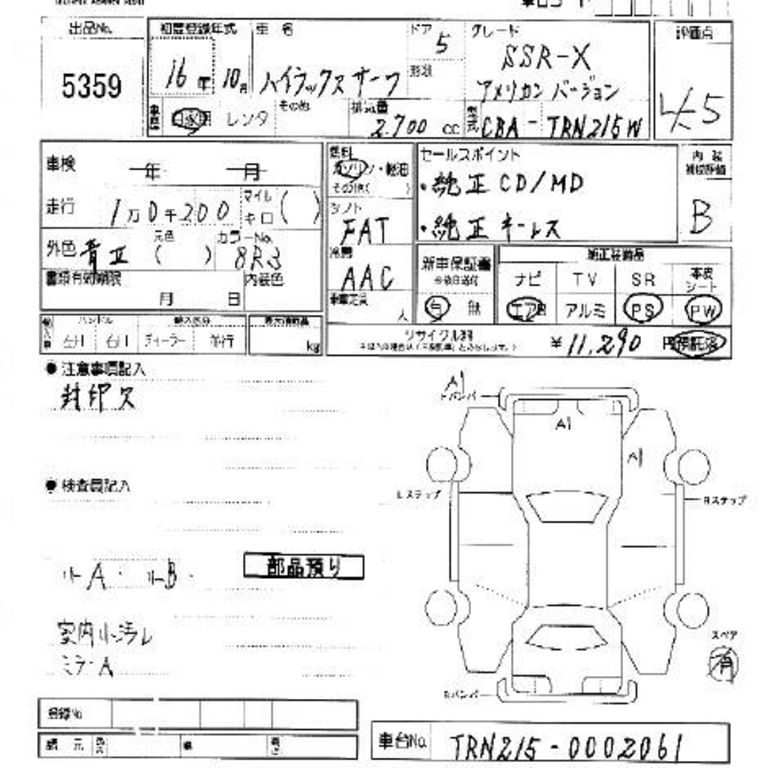 出品No. 初度登録年式 車名 ドア グレード 評価点
5359 16年 10月 ハイラックスサーフ 5 SSR-X
形状 アメリカン バージョン
自家用 レンタ その他 排気量 2.700 CC 型式 CBA-TRN215W 4.5
車検 年 月 燃料 ガソリン・軽油 その他( ) セールスポイント 内装
走行 1万0千200 マイル キロ ( ) シフト FAT ・純正CD/MD
・純正キーレス B
外色 青M 元色 ( ) カラーNo. 8R3 冷房 AAC 新車保証書 純正装備品
書類有効期限 月 日 内装色 乗車定員 人 有 無 ナビ TV SR 本皮シート
エアB アルミ PS PW
輸入車 ハンドル 左H 右H ディーラー 並行 最大積載量 kg
リサイクル料 ¥11,290 円 預託済
●注意事項記入
封印欠
A1
Fバンパ
A1
A1
●検査員記入
Lステップ Rステップ
小A・小B・ 部品預り
室内小汚レ
ミラーA
スペア
有
Rバンパ
登録No
諸元 長さ 幅 高さ
車台No. TRN215-0002061